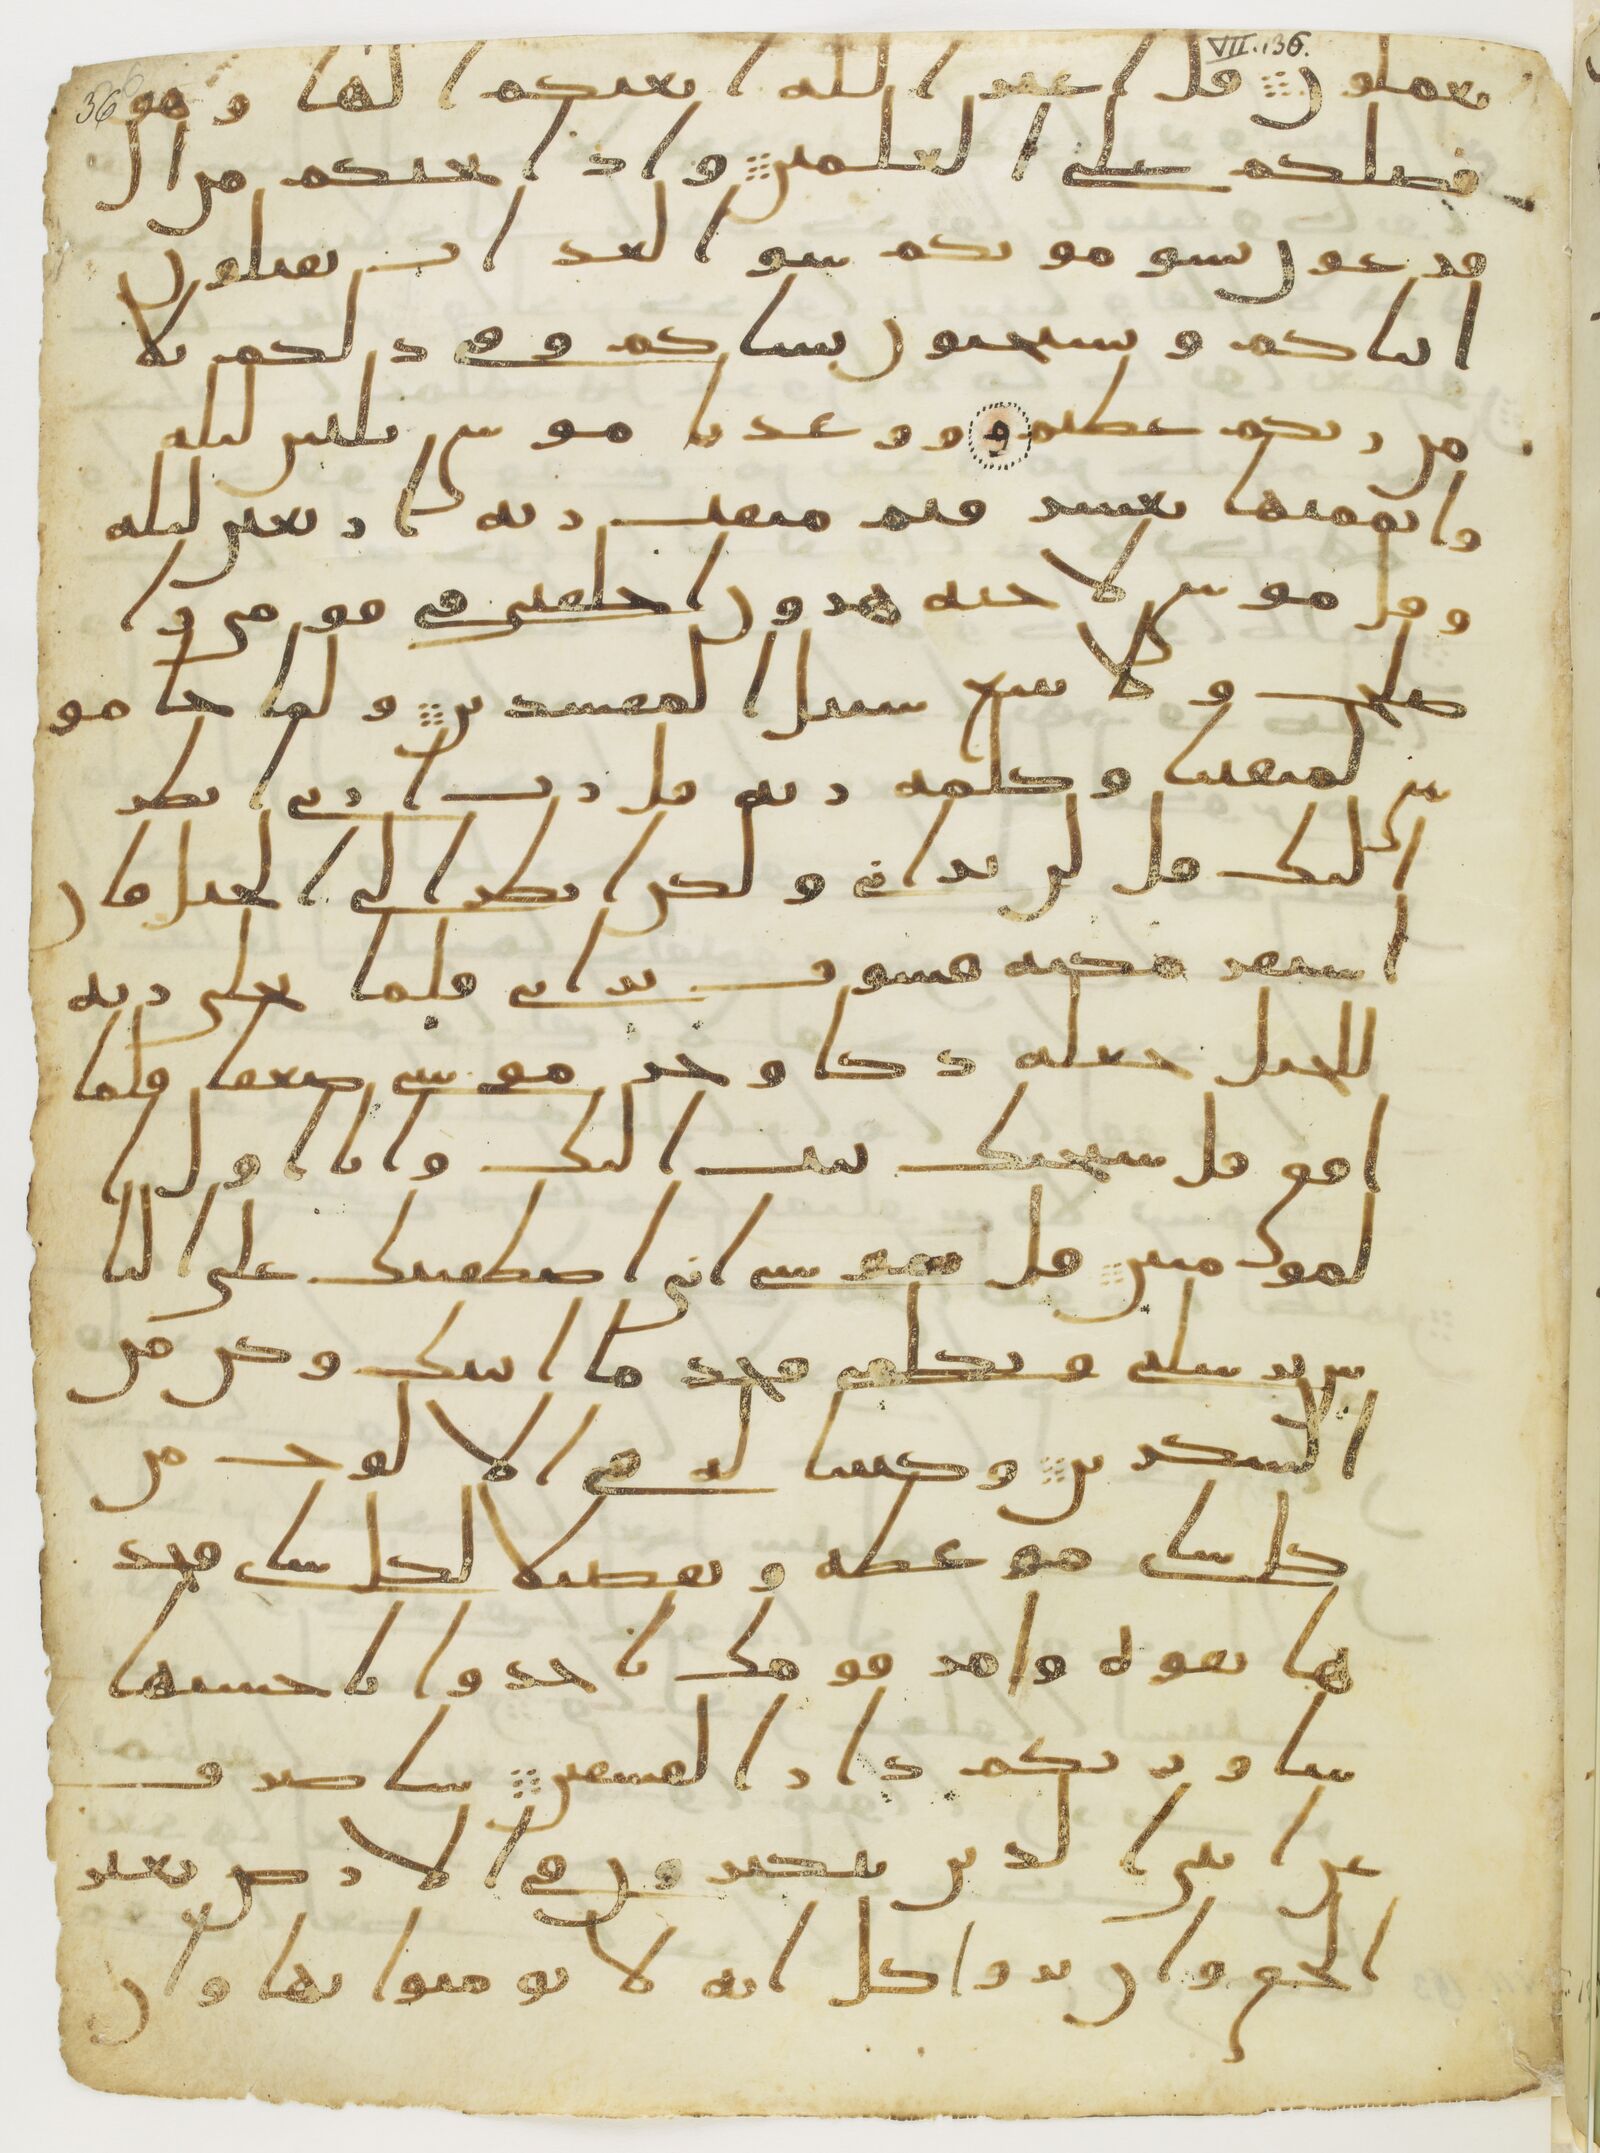 VII.136.
36
يعملون قل اغير الله ابغيكم الها وهو
فضلكم على العلمين واذ انجيكم من ال
فرعون يسومونكم سو العذاب يقتلون
ابناكم ويستحيون نساكم وفي ذلكم بلا
من ربكم عظيم و ووعدنا موسى ثلثين ليلة
واتممنها بعشر فتم ميقت ربه اربعين ليلة
وقل موسى لاخيه هرون اخلفني في قومي وا
صلح ولا تتبع سبيل المفسدين ولما جا مو
سى لميقتنا وكلمه ربه قل رب ارني انظر
اليك قل لن تراني ولكن انظر الى الجبل فان
استقر مكنه فسوف تراني فلما تجلى ربه
للجبل جعله دكا وخر موسى صعقا فلما
افق قل سبحنك تبت اليك وانا اول ا
لمومنين قل يموسى اني اصطفيتك على النا
س برسلتي وبكلمي فخذ ما اتيتك وكن من
الشكرين وكتبنا له في الالوح من
كل شاي موعظة وتفصيلا لكل شاي فخذ
ها بقوة وامر قومك ياخذوا باحسنها
ساوريكم دار الفسقين ساصرف
عن ايتي الذين يتكبرون في الارض بغير
الحق وان يروا كل اية لا يومنوا بها وان